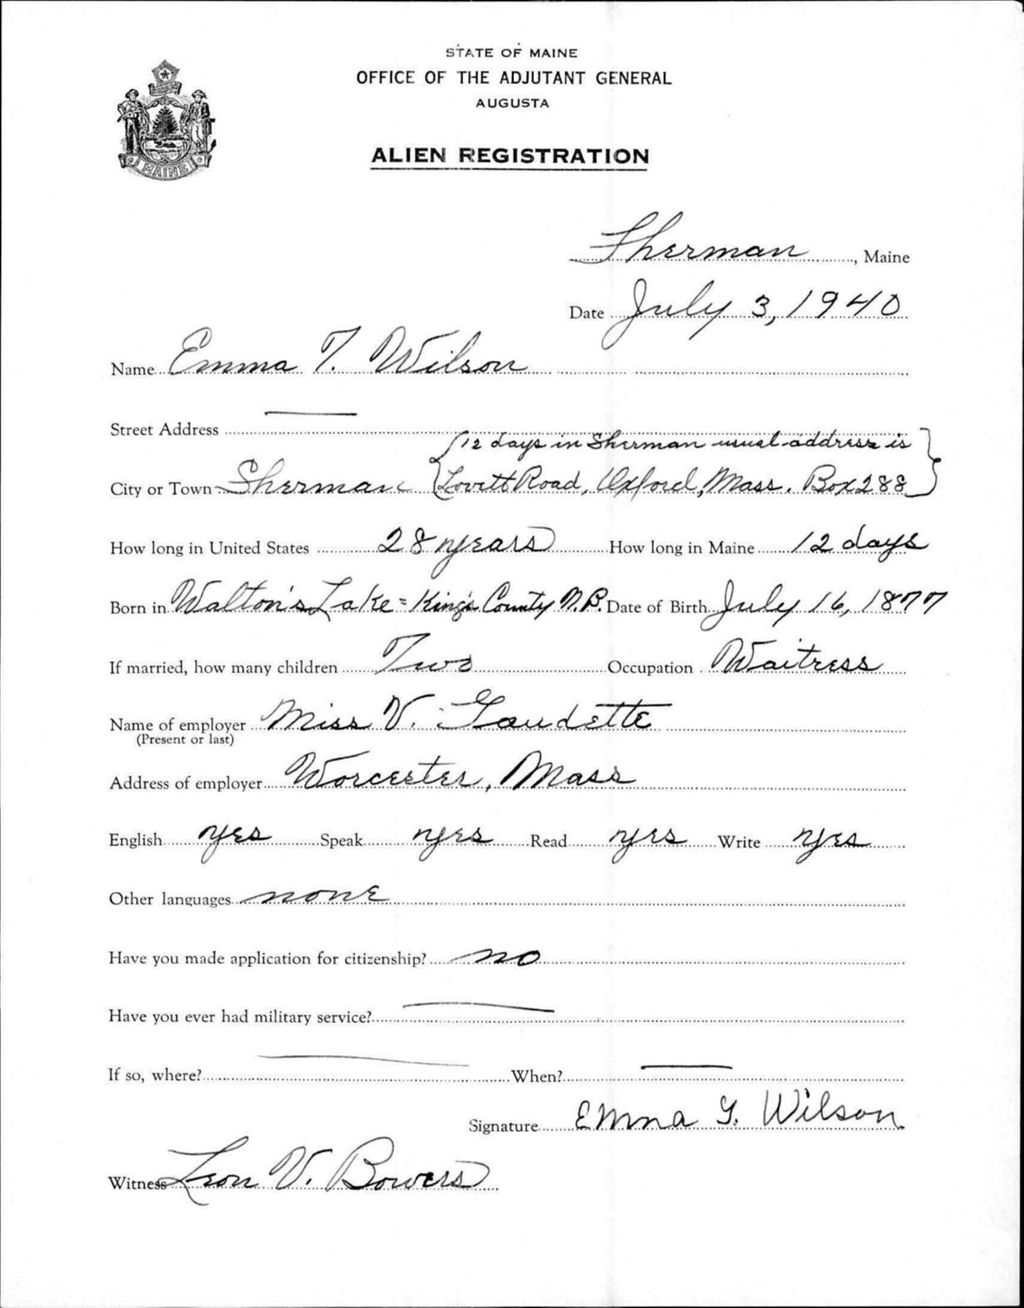 STATE OF MAINE
OFFICE OF THE ADJUTANT GENERAL
AUGUSTA
ALIEN REGISTRATION
MAINE
Sherman, Maine
Date July 3, 1940
Name Emma T. Wilson
Street Address
{12 days in Sherman usual address is
City or Town Sherman Lovett Road, Oxford, Mass. Box 288}
How long in United States 28 years How long in Maine 12 days
Born in Walton's Lake = King's County N.B. Date of Birth July 16, 1877
If married, how many children Two Occupation Waitress
Name of employer Miss V. Gaudette
(Present or last)
Address of employer Worcester, Mass
English yes Speak yes Read yes Write yes
Other languages none
Have you made application for citizenship? no
Have you ever had military service?
If so, where? When?
Signature Emma T. Wilson
Witness Leon V. Bowers